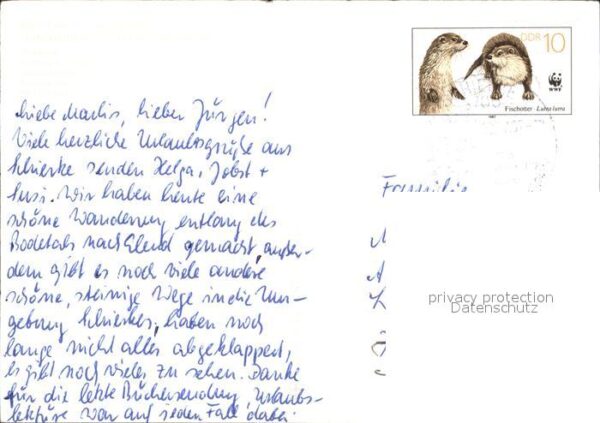 DDR 10
WWF
Fischotter · Lutra lutra
1987
Liebe Marlis, lieber Jürgen!
Viele herzliche Urlaubsgrüße aus
Schierke senden Helga, Jobst +
Susi. Wir haben heute eine
schöne Wanderung entlang des
Bodetals nach Elend gemacht, außer-
dem gibt es noch viele andere
schöne, steinige Wege in die Um-
gebung Schierkes, haben noch
lange nicht alles abgeklappert,
es gibt noch vieles zu sehen. Danke
für die letzte Büchersendung, Urlaubs-
lektüre war auf jeden Fall dabei.
Familie
privacy protection
Datenschutz